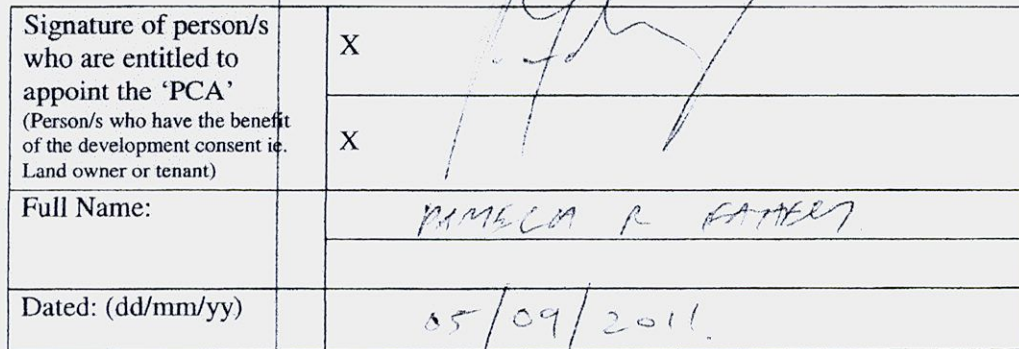 Signature of person/s
who are entitled to
appoint the ‘PCA’
(Person/s who have the benefit
of the development consent ie.
Land owner or tenant)
X
X
Full Name:
PAMELA R
Dated: (dd/mm/yy)
05/09/2011